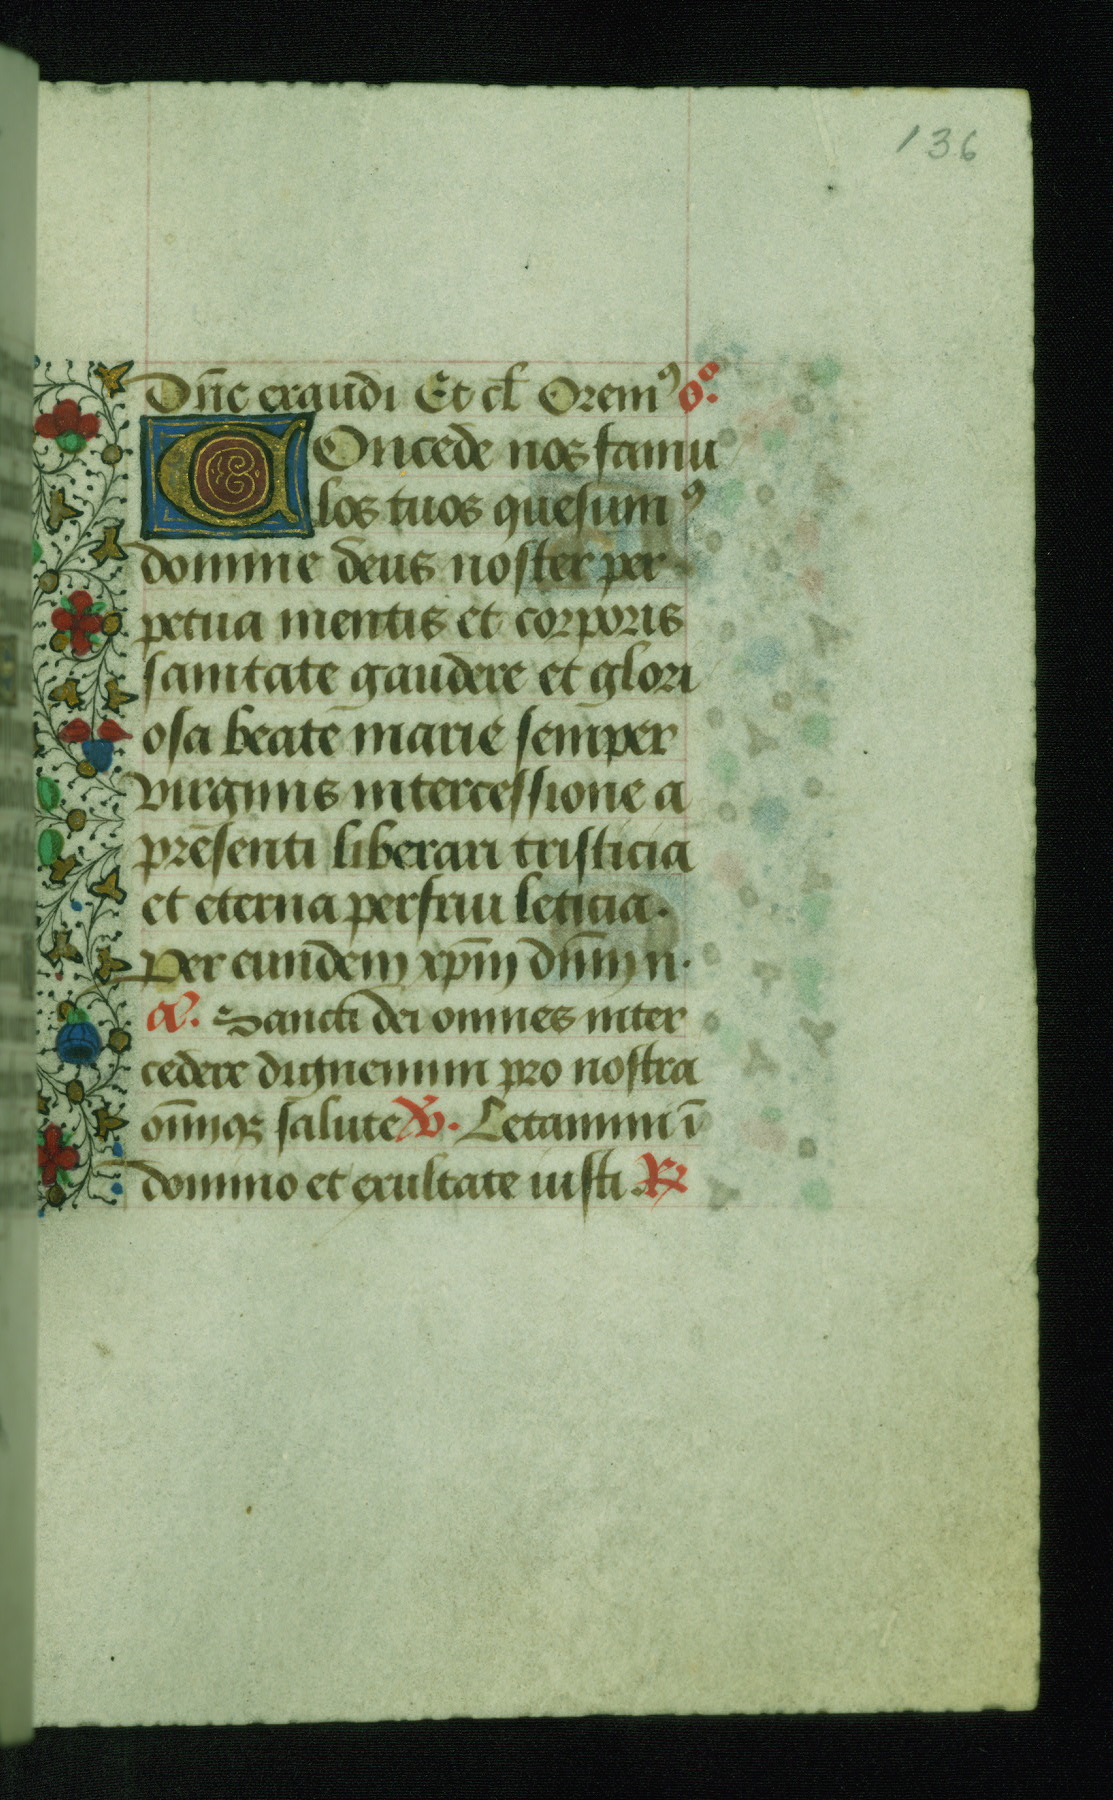 136
Dn̄e exaudi Et cl̄ Oremꝰ oͦ.
COncede nos famu
los tuos quesumꝰ
domine deus noster per
petua mentis et corporis
sanitate gaudere et glori
osa beate marie semper
virginis intercessione a
presenti liberari tristicia
et eterna perfrui leticia.
Per eundem xp̄m dn̄m n.
a͞. Sancti dei omnes inter
cedere dignemini pro nostra
om̄iqꝫ salute v̄. Letamini ī
domino et exultate iusti. ℟